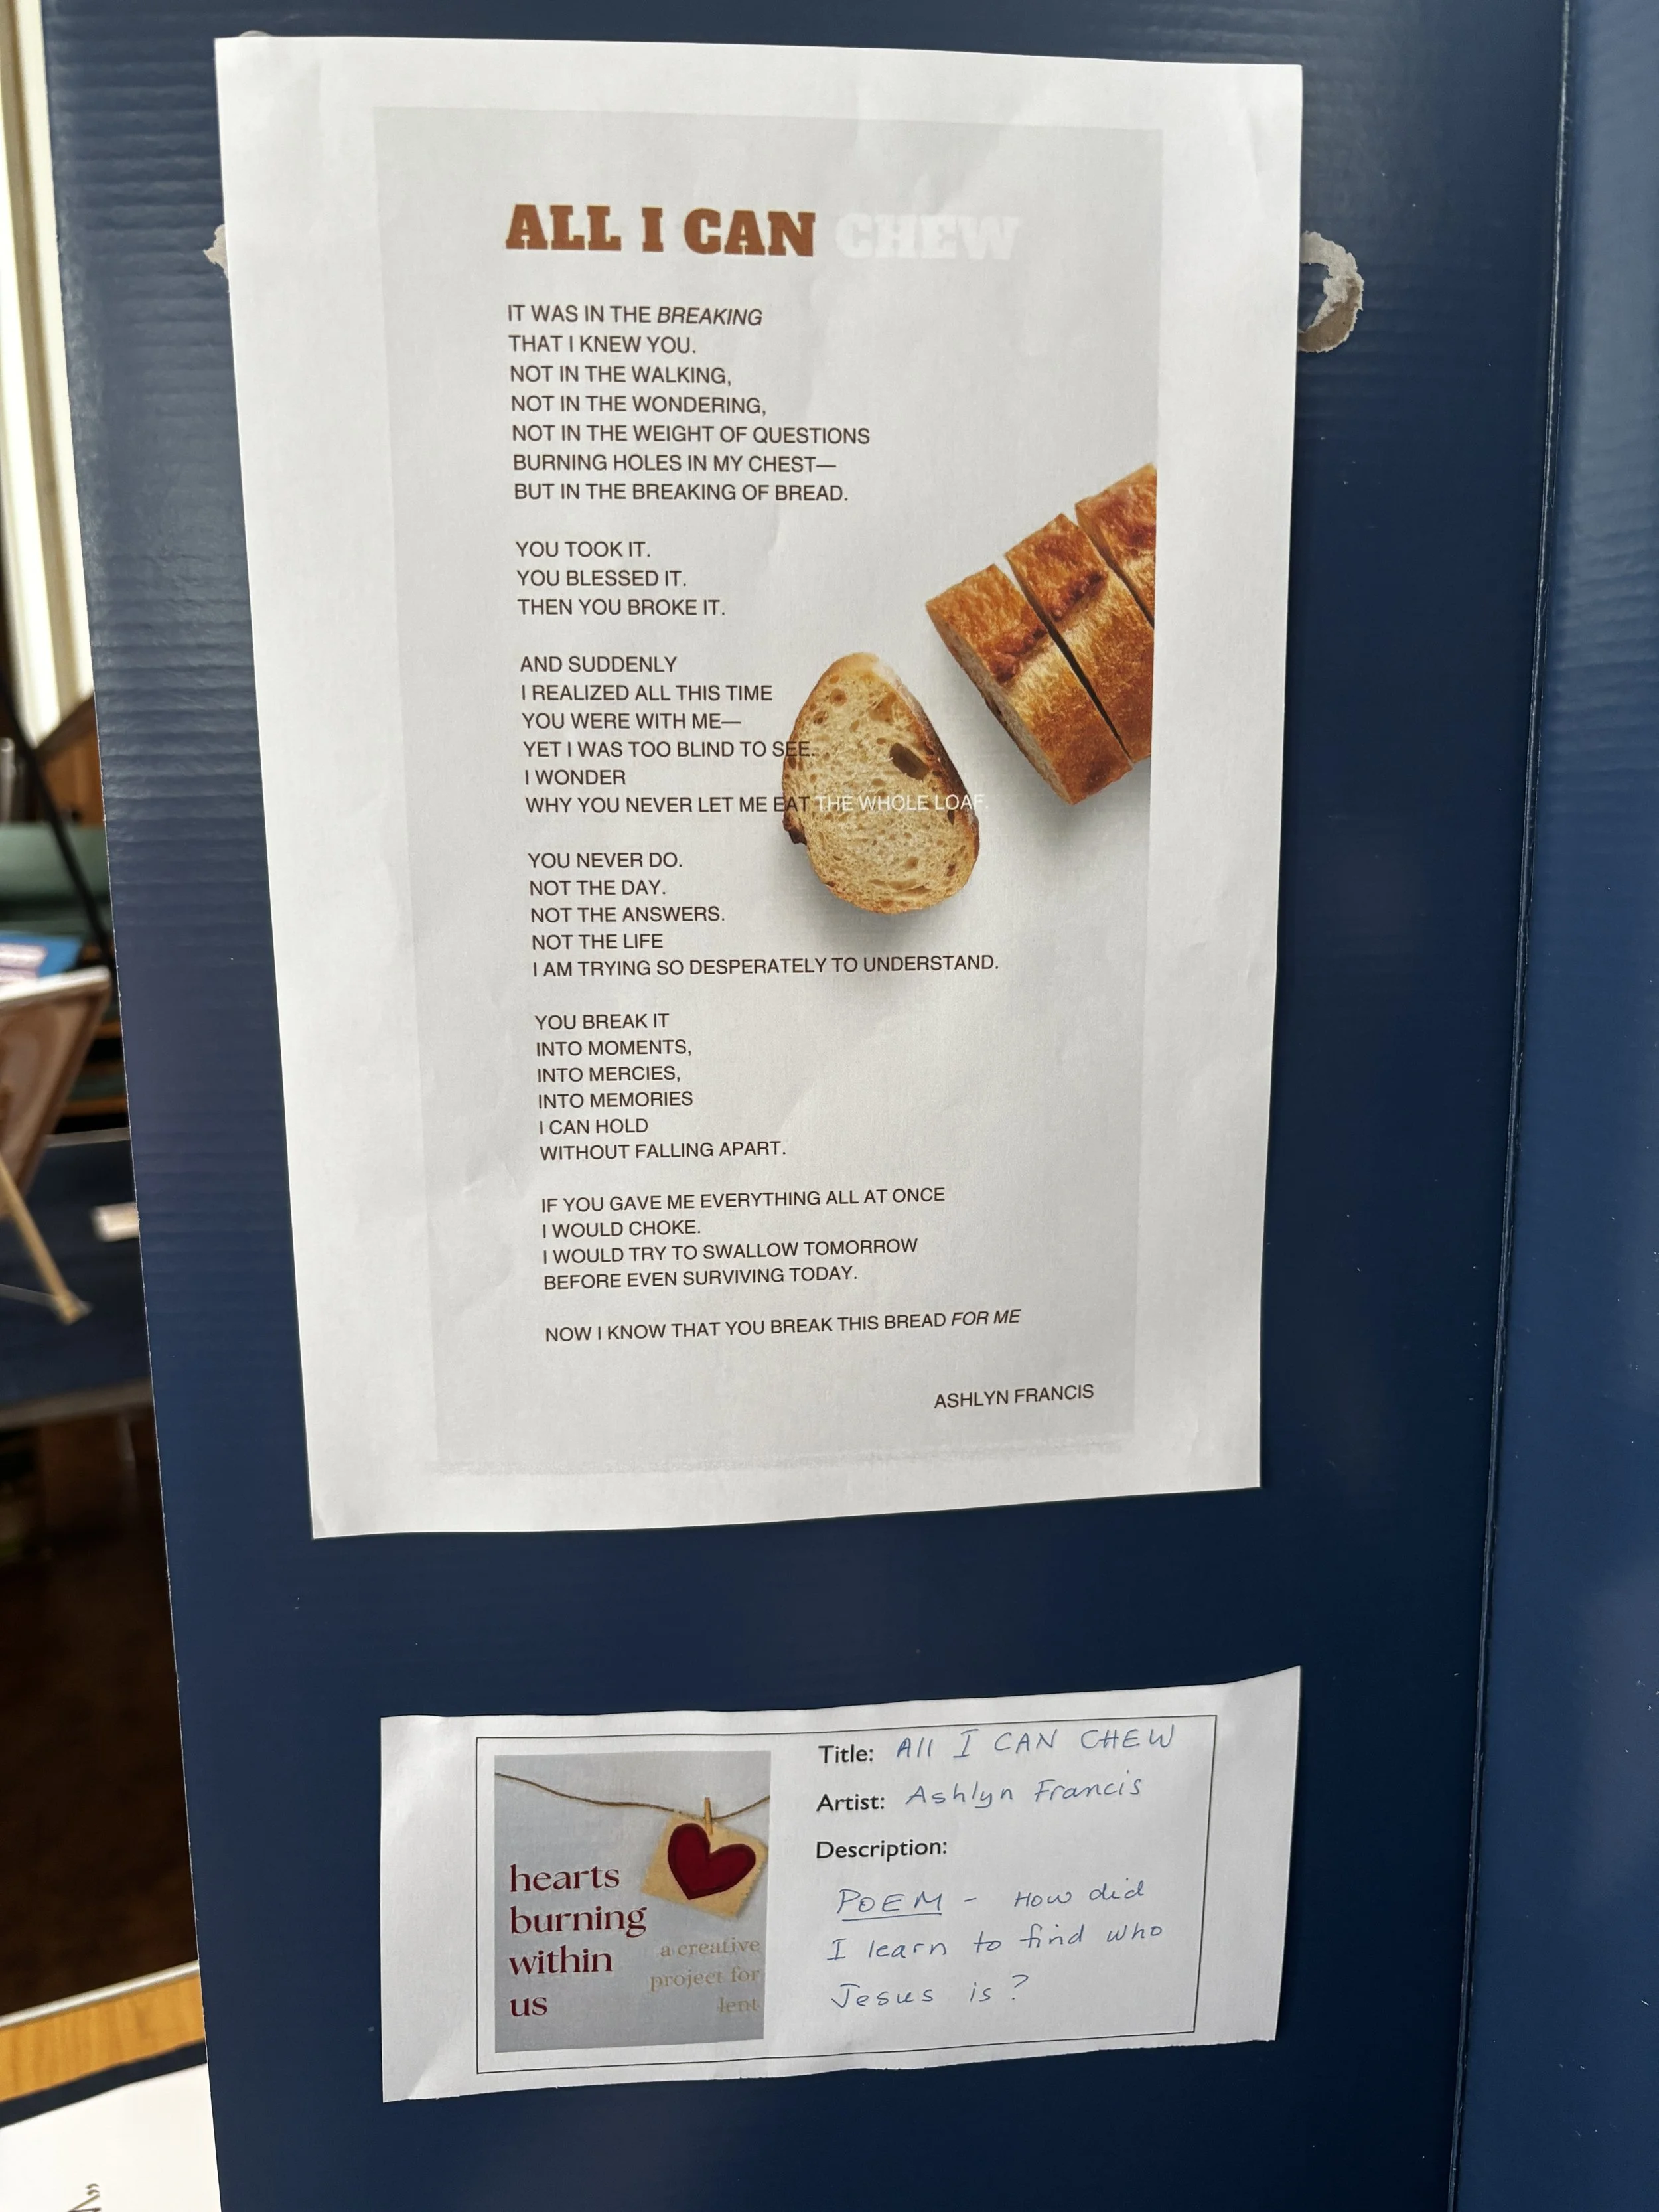 ALL I CAN CHEW
IT WAS IN THE BREAKING
THAT I KNEW YOU.
NOT IN THE WALKING,
NOT IN THE WONDERING,
NOT IN THE WEIGHT OF QUESTIONS
BURNING HOLES IN MY CHEST—
BUT IN THE BREAKING OF BREAD.
YOU TOOK IT.
YOU BLESSED IT.
THEN YOU BROKE IT.
AND SUDDENLY
I REALIZED ALL THIS TIME
YOU WERE WITH ME—
YET I WAS TOO BLIND TO SEE.
I WONDER
WHY YOU NEVER LET ME EAT THE WHOLE LOAF.
YOU NEVER DO.
NOT THE DAY.
NOT THE ANSWERS.
NOT THE LIFE
I AM TRYING SO DESPERATELY TO UNDERSTAND.
YOU BREAK IT
INTO MOMENTS,
INTO MERCIES,
INTO MEMORIES
I CAN HOLD
WITHOUT FALLING APART.
IF YOU GAVE ME EVERYTHING ALL AT ONCE
I WOULD CHOKE.
I WOULD TRY TO SWALLOW TOMORROW
BEFORE EVEN SURVIVING TODAY.
NOW I KNOW THAT YOU BREAK THIS BREAD FOR ME
ASHLYN FRANCIS
hearts
burning
within
us
a creative
project for
lent
Title: All I CAN CHEW
Artist: Ashlyn Francis
Description:
POEM - How did
I learn to find who
Jesus is?